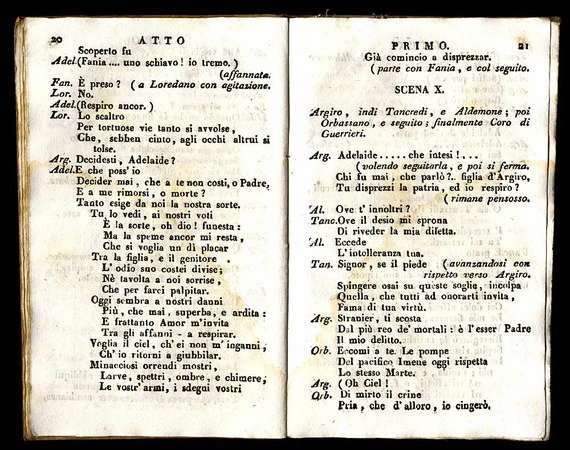 20 ATTO
Scoperto fu
Adel.(Fania .... uno schiavo! io tremo.)
(affannata.
Fan. È preso? (a Loredano con agitazione.
Lor. No.
Adel.(Respiro ancor.)
Lor. Lo scaltro
Per tortuose vie tanto si avvolse,
Che, sebben cinto, agli occhi altrui si
tolse.
Arg. Decidesti, Adelaide?
Adel.E che poss' io
Decider mai, che a te non costi, o Padre,
E a me rimorsi, o morte?
Tanto esige da noi la nostra sorte.
Tu lo vedi, ai nostri voti
È la sorte, oh dio! funesta:
Ma la speme ancor mi resta,
Che si voglia un dì placar
Tra la figlia, e il genitore
L' odio suo costei divise;
Nè tavolta a noi sorrise,
Che per farci palpitar.
Oggi sembra a nostri danni
Più, che mai, superba, e ardita:
E frattanto Amor m'invita
Tra gli affanni - a respirar.
Voglia il ciel, ch' ei non m' inganni,
Ch' io ritorni a giubbilar.
Minacciosi orrendi mostri,
Larve, spettri, ombre, e chimere,
Le vostr' armi, i sdegni vostri
PRIMO. 21
Già comincio a disprezzar.
(parte con Fania, e col seguito.
SCENA X.
Argiro, indi Tancredi, e Aldemone; poi
Orbassano, e seguito; finalmente Coro di
Guerrieri.
Arg. Adelaide.....che intesi!...
(volendo seguitarla, e poi si ferma.
Chi fu mai, che parlò?.. figlia d'Argiro,
Tu disprezzi la patria, ed io respiro?
(rimane pensoso.
Al. Ove t' innoltri?
Tanc.Ove il desio mi sprona
Di riveder la mia diletta.
Al. Eccede
L' intolleranza tua.
Tan. Signor, se il piede (avanzandosi con
rispetto verso Argiro.
Spingere osai su queste soglie, incolpa
Quella, che tutti ad onorarti invita,
Fama di tua virtù.
Arg. Stranier, ti scosta
Dal più reo de' mortali: è l'esser Padre
Il mio delitto.
Orb. Eccomi a te. Le pompe
Del pacifico Imene oggi rispetta
Lo stesso Marte.
Arg. (Oh Ciel!
Orb. Di mirto il crine
Pria, che d' alloro, io cingerò,